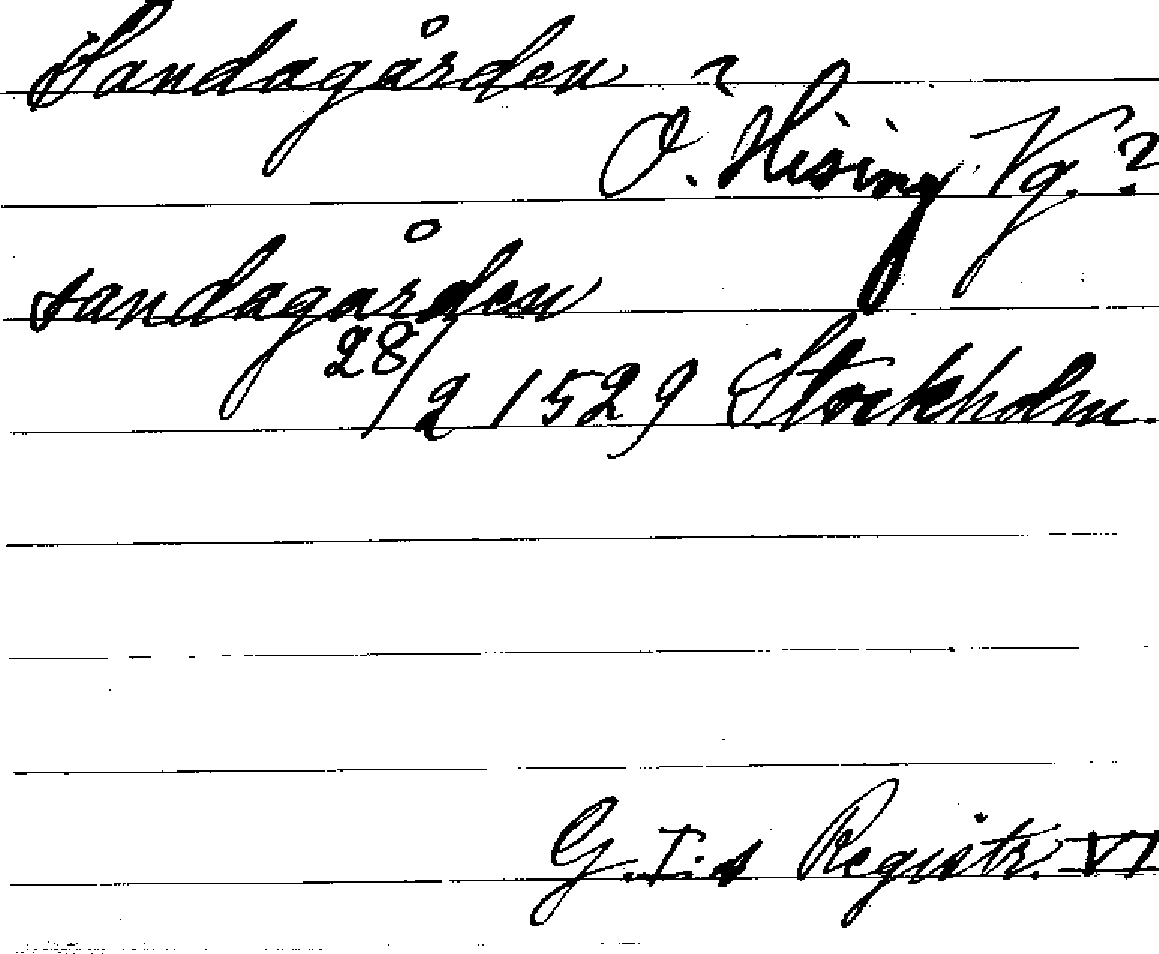 Sandagården ?
O. Hising Vg. ?
sandagården
28/2 1529 Stockholm.
G. I:s Registr. VI